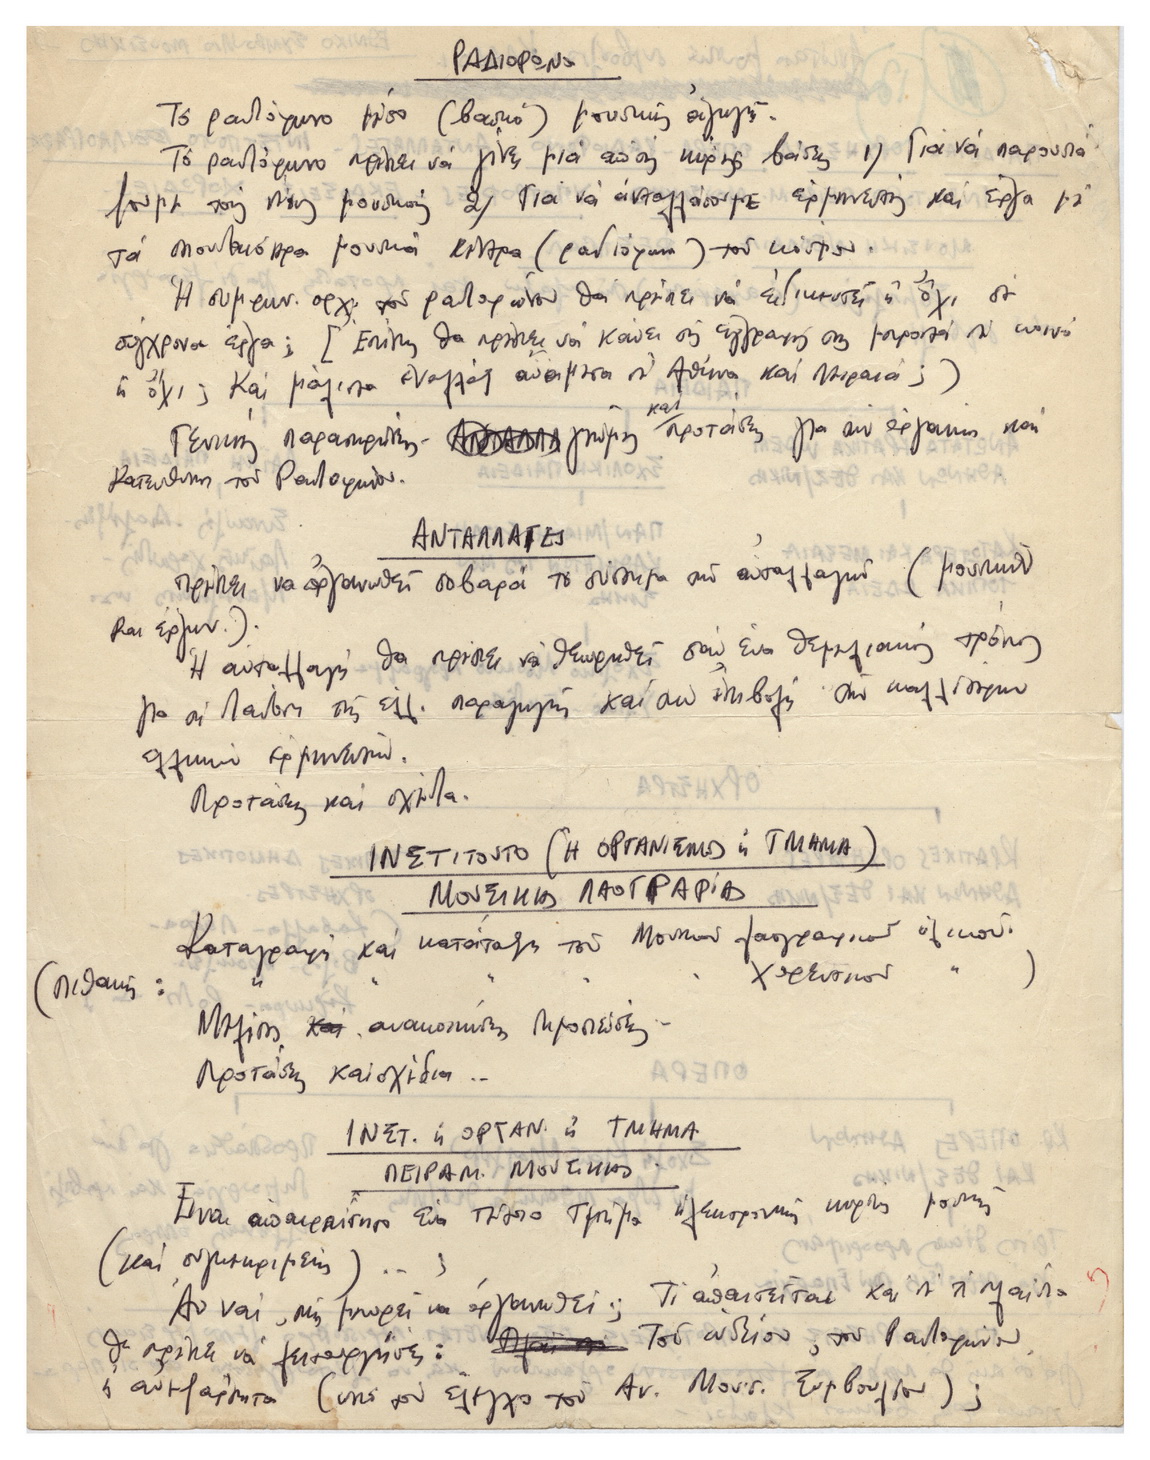 ΡΑΔΙΟΦΩΝΟ
Τό ραδιόφωνο μέσο (βασικό) μουσικής ἀγωγῆς.
Τό ραδιόφωνο πρέπει νά γίνει μιά ἀπό τίς κύριες βάσεις 1) Γιά νά παρουσιά
ζουμε τούς νέους μουσικούς 2) Γιά νά ἀνταλλάσουμε ἑρμηνευτές καί ἔργα μέ
τά σπουδαιότερα μουσικά κέντρα (ραδιόφωνα) τοῦ κόσμου.
Ἡ συμφων. ορχ. τοῦ ραδιοφώνου θά πρέπει νά εἰδικευτεῖ ἤ ὄχι σέ
σύγχρονα ἔργα; [Ἐπίσης θα πρέπει νά κάνει τίς ἐγγραφές της μπροστά σέ κοινό
ἤ ὄχι; Καί μάλιστα ἐναλλάξ ἀνάμεσα σέ Ἀθήνα καί Πειραιά;)
Γενικές παρατηρήσεις - γνώμες καί προτάσεις γιά τήν ὀργάνωση καί
Κατεύθυνση τοῦ Ραδιοφώνου.
ΑΝΤΑΛΛΑΓΕΣ
Πρέπει να ὀργανωθεῖ σοβαρά τό σύστημα τῶν ἀνταλλαγῶν (μουσικῶν
και ἔργων.).
Ἡ ἀνταλλαγή θα πρέπει νά θεωρηθεῖ σάν ἕνα θεμελιακός τρόπος
γιά τή διάδοση τῆς ἑλλ. παραγωγῆς καί τήν ἐπιβολή τῶν καλλίτερων
ελληνων ἑρμηνευτῶν.
Προτάσεις καί σχέδια.
ΙΝΣΤΙΤΟΥΤΟ (Ἤ ΟΡΓΑΝΙΣΜΟΣ ἤ ΤΜΗΜΑ)
ΜΟΥΣΙΚΗΣ ΛΑΟΓΡΑΦΙΑΣ
Καταγραφή καί κατάταξη τοῦ Μουσικοῦ λαογραφικοῦ ὑλικοῦ.
(πιθανῶς: " " " " Χορευτικοῦ " )
Μελέτες, ανακοινώσεις δημοσιεύσεις -
Προτάσεις καί σχέδια ..
ΙΝΣΤ. ἤ ΟΡΓΑΝ. ἤ ΤΜΗΜΑ
ΠΕΙΡΑΜ. ΜΟΥΣΙΚΗΣ.
Εἶναι ἀπαραίτητο ἕνα τέτοιο Τμῆμα ἠλεκτρονικῆς κυρίως μουσικῆς
(καί συγκεκριμένης) .. ;
Ἄν ναί, πῶς μπορεῖ να ὀργανωθεῖ; Τί ἀπαιτεῖται και σέ τί πλαίσια
θα πρέπει νά λειτουργήσει: Τοῦ ᾠδείου, τοῦ Ραδιοφώνου
ἤ ἀνεξάρτητα (υπό τον ἔλεγχο τοῦ Αν. Μουσ. Συμβουλίου) ;